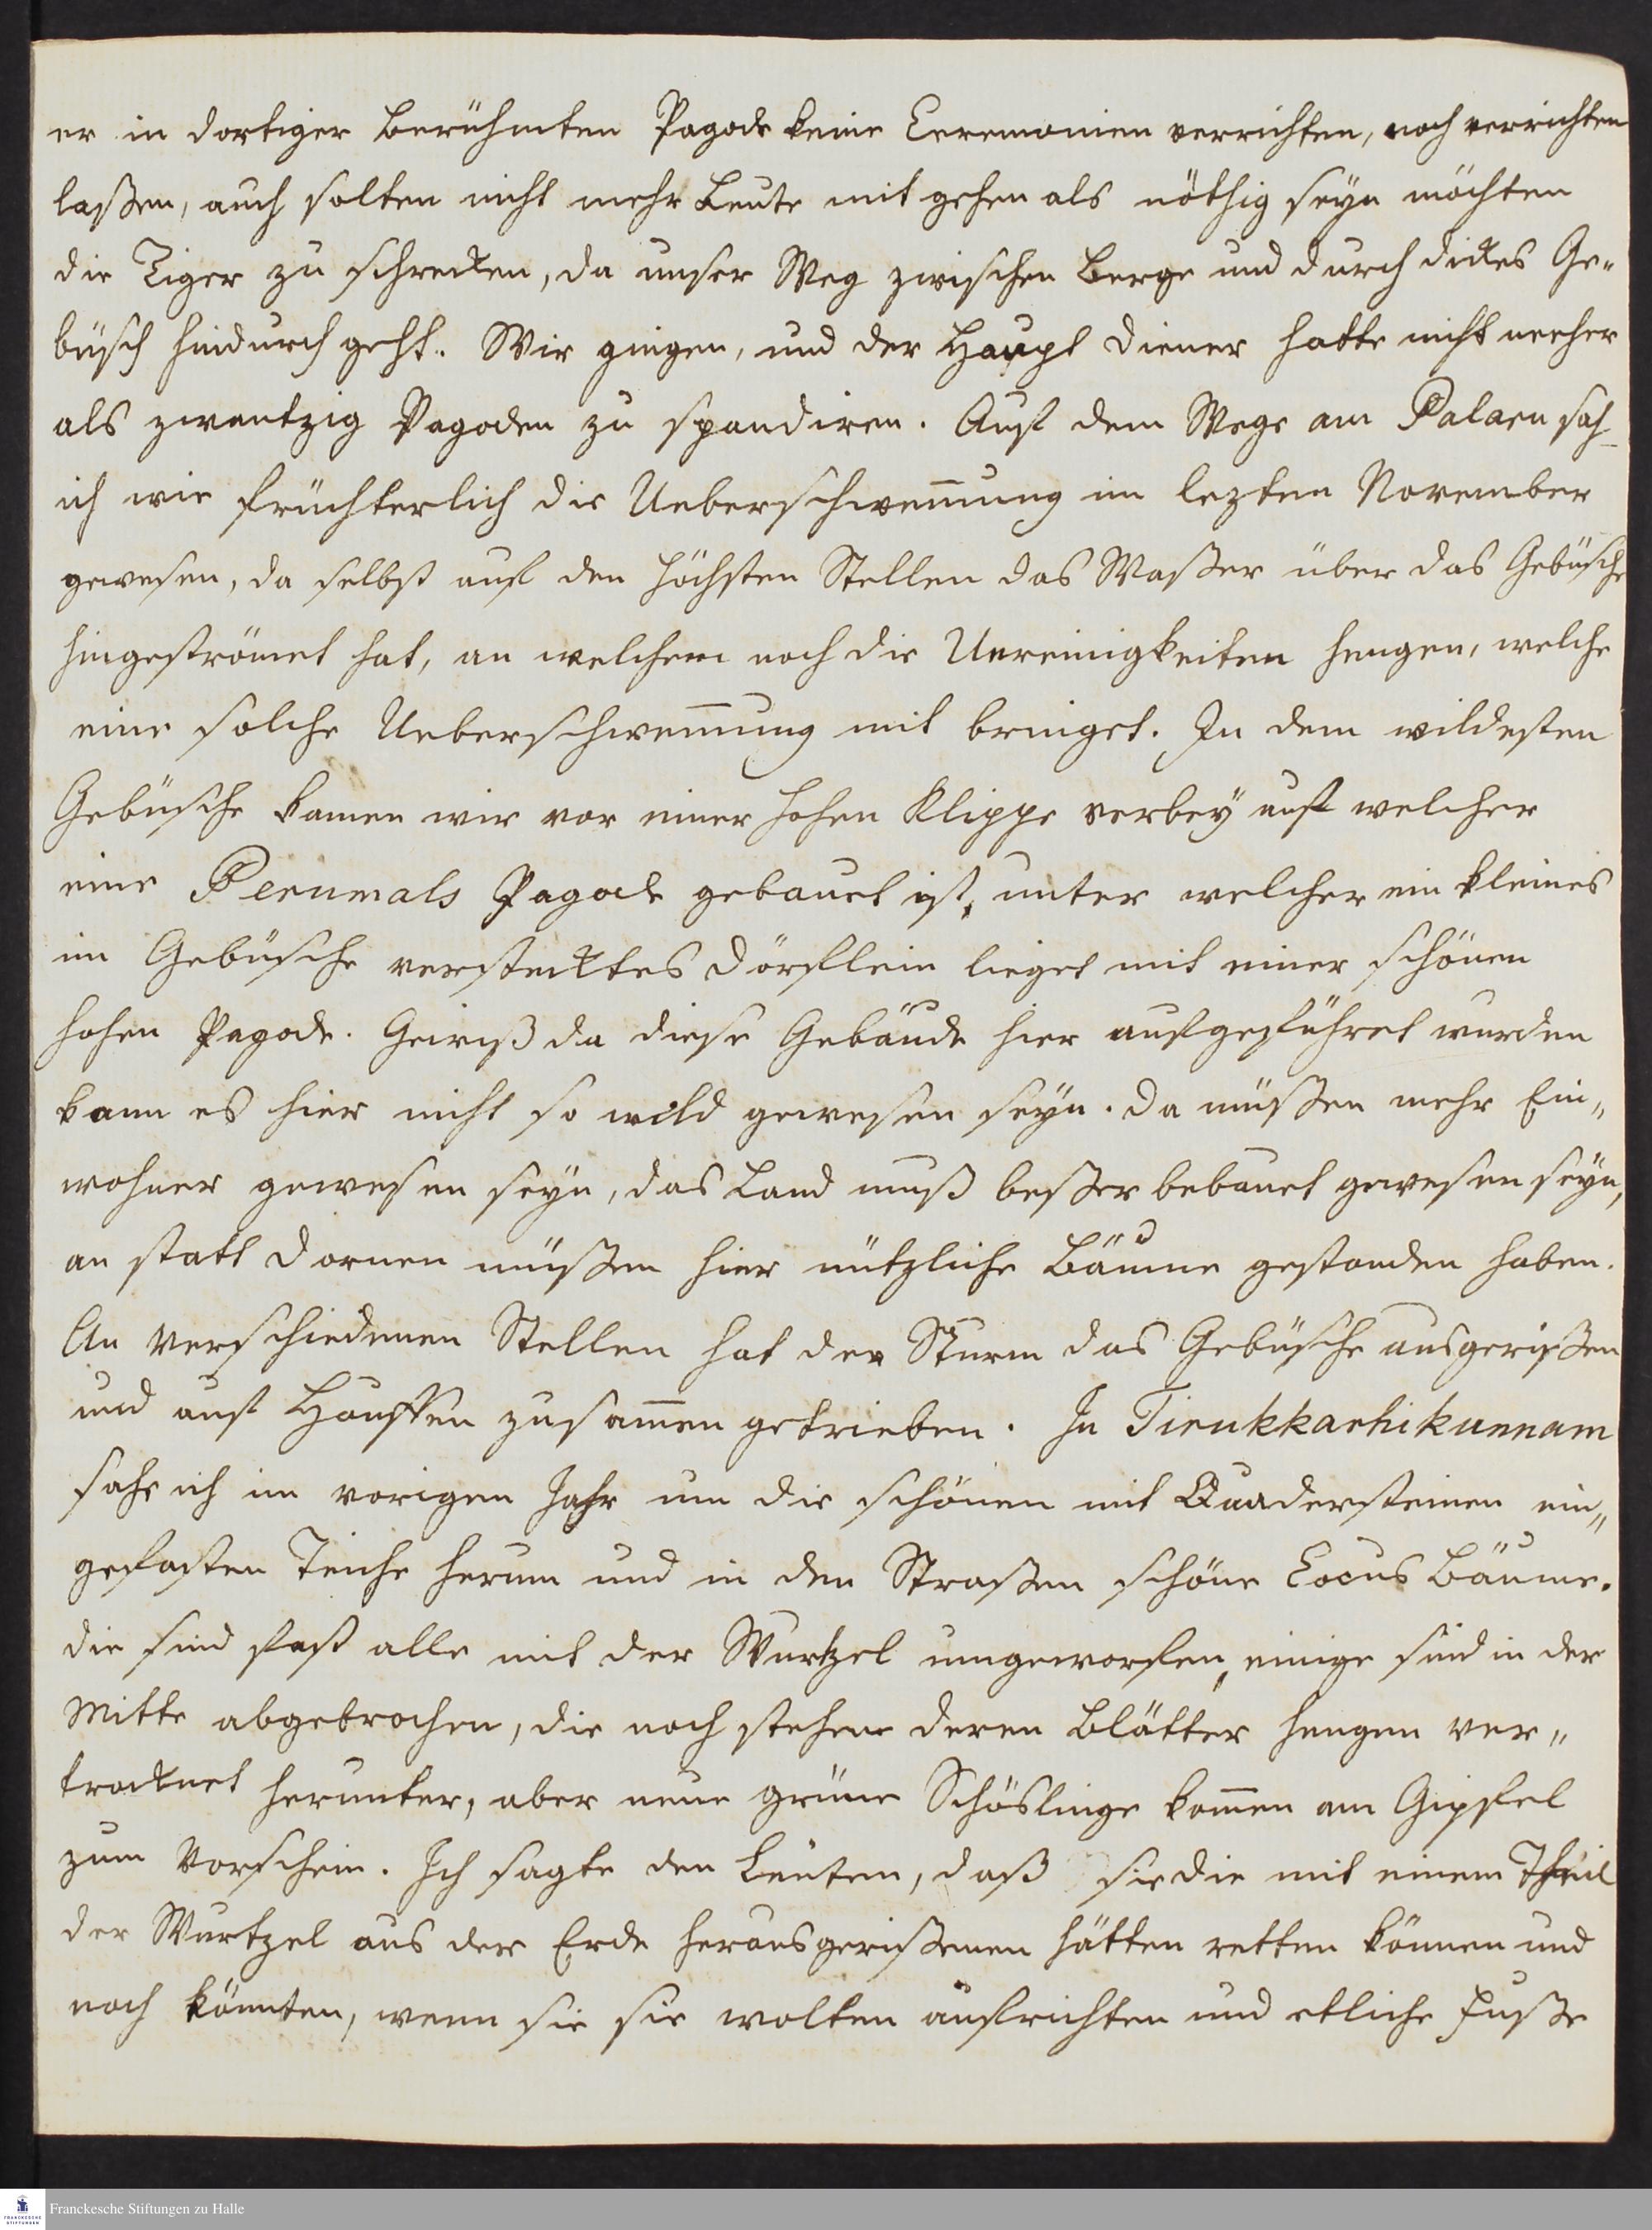 er in dortiger berühmten Pagode keine Ceremonien verrichten, noch verrichten
laßen, auch solten nicht mehr Leute mit gehen als nöthig seyn möchten
die Tiger zu schrecken, da unser Weg zwischen Berge und durch dickes Ge„
büsch hindurch geht. Wir gingen, und der Haupt Diener hatte nicht mehr
als zwantzig Pagoden zu spendiren. Auf dem Wege am Palaru sah
ich wie früchterlich die Ueberschwem̅ung im lezten November
gewesen, da selbst auf den höchsten Stellen das Waßer über das Gebüsche
hingeströmet hat, an welchem noch die Unreinigkeiten hengen, welche
eine solche Ueberschwem̅ung mit bringet. In dem wildesten
Gebüsche kamen wir vor einer hohen Klippe verbey auf welcher
eine Perumals Pagode gebauet ist, unter welcher ein kleines
im Gebüsche verstecktes Dörflein lieget mit einer schönen
hohen Pagode. Gewiß da diese Gebäude hier aufgeführet wurden
kann es hier nicht so wild gewesen seyn. Da müßen mehr Ein„
wohner gewesen seyn, das Land muß beßer bebauet gewesen seyn,
an statt Dornen müßen hier nützliche Bäume gestanden haben.
An verschiedenen Stellen hat der Sturm das Gebüsche ausgerißen
und auf Hauffen zusam̅en getrieben. In Tirukkarhikunnam
sahe ich im vorigen Jahr um die schönen mit Quadersteinen ein„
gefaßten Teiche herum und in den Straßen schöne Cocus Bäume.
die sind fast alle mit der Wurtzel umgeworfen, einige sind in der
Mitte abgebrochen, die noch stehen deren Blätter hengen ver„
trocknet herunter, aber neue grüne Schöslinge kom̅en am Gipfel
zum Vorschein. Ich sagte den Leuten, daß sie die mit einem Theil
der Wurtzel aus der Erde herausgerißenen hätten retten können und
noch könnten, wenn sie sie wolten aufrichten und etliche Fuße
Franckesche Stiftungen zu Halle